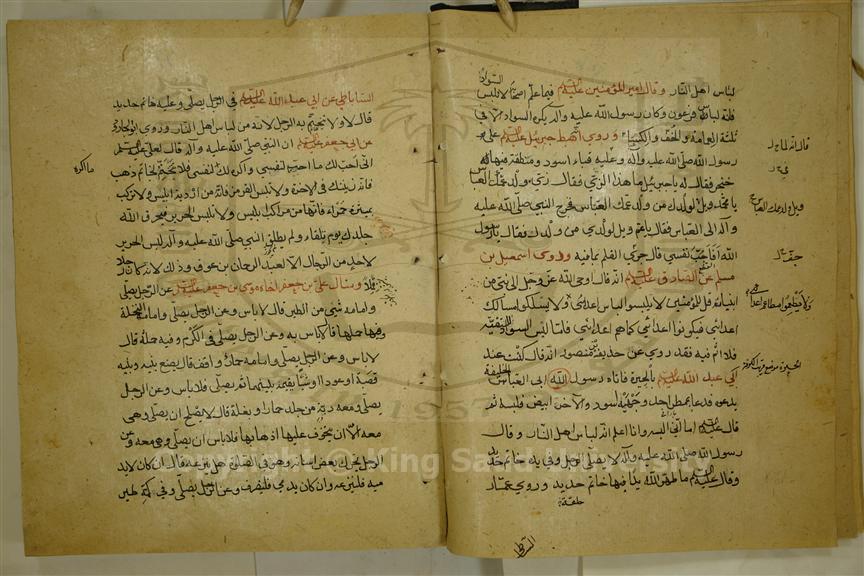 لباس اهل النار وقال امير المؤمنين عليه السلام فيما علم اصحابه لا تلبسوا السواد
فانه لباس فرعون وكان رسول الله صلى الله عليه وآله يكره السواد الا في
ثلثة العمامة والخف والكساء وروى انه هبط جبرئيل عليه السلام على
رسول الله صلى الله عليه وآله وعليه قباء اسود ومنطقة فيها
خنجر فقال له يا جبرئيل ما هذا الزي فقال زي ولد عمك العباس
يا محمد ويل لولدك من ولد عمك العباس فخرج النبي صلى الله عليه
وآله الى العباس فقال يا عم ويل لولدي من ولدك فقال يا رسول
الله افاجب نفسي قال جرى القلم بما فيه وروى اسمعيل بن
مسلم عن الصادق عليه السلام انه قال اوحى الله عز وجل الى نبي من
انبيائه قل للمؤمنين لا يلبسوا لباس اعدائي ولا يسلكوا مسالك
اعدائي فيكونوا اعدائي كما هم اعدائي فاما لبس السواد للتقية
فلا اثم فيه فقد روي عن حذيفة بن منصور انه قال كنت عند
ابي عبد الله عليه السلام بالحيرة فاتاه رسول ابي العباس الخليفة
يدعوه فدعا بممطر احد وجهيه اسود والآخر ابيض فلبسه ثم
قال عليه السلام اما اني البسه وانا اعلم انه لباس اهل النار وقال
رسول الله صلى الله عليه وآله لا يصلي الرجل وفي يده خاتم حديد
وقال عليه السلام ما طهر الله يدا فيها خاتم حديد وروى عمار
حلقة
الساباطي
ويل ولد عمك العباس
ولا يطعموا مطاعم اعدائي
الحيرة موضع قرب الكوفة
الساباطي عن ابي عبد الله عليه السلام في الرجل يصلي وعليه خاتم حديد
قال لا ولا يتختم به الرجل لانه من لباس اهل النار وروى ابو الجارود
عن ابي جعفر عليه السلام ان النبي صلى الله عليه وآله قال لعلي عليه السلام
اني احب لك ما احب لنفسي واكره لك ما اكره لنفسي فلا تتختم بخاتم ذهب
فانه زينتك في الآخرة ولا تلبس القرمز فانه من اردية ابليس ولا تركب
بميثرة حمراء فانها من مراكب ابليس ولا تلبس الحرير فيحرق الله
جلدك يوم تلقاه ولم يطلق النبي صلى الله عليه وآله لبس الحرير
لاحد من الرجال الا لعبد الرحمان بن عوف وذلك لانه كان رجلا
قملا وسأل علي بن جعفر اخاه موسى بن جعفر عليه السلام عن الرجل يصلي
وامامه شيء من الطير قال لا باس وعن الرجل يصلي وامامه النخلة
وفيها حملها قال لا باس به وعن الرجل يصلي في الكرم وفيه حمله قال
لا باس وعن الرجل يصلي وامامه حمار واقف قال يضع بينه وبينه
قصبة او عودا او شيئا يقيمه بينهما ثم يصلي فلا باس وعن الرجل
يصلي ومعه دبة من جلد حمار او بغل قال لا يصلح ان يصلي وهي
معه الا ان يتخوف عليها ذهابها فلا باس ان يصلي وهي معه وعن
الرجل تحرك بعض اسنانه وهو في الصلوة هل ينزعه قال ان كان لا يدميه
فلينزعه وان كان يدمي فلينصرف وعن الرجل يصلي وفي كمه طير
ما اكره
Copyright © King Saud University
1957